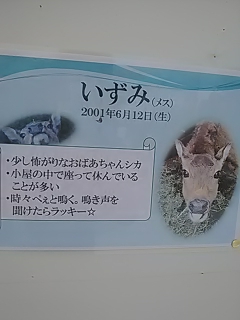 いずみ(メス)
2001年6月12日(生)
・少し怖がりなおばあちゃんシカ
・小屋の中で座って休んでいる
ことが多い
・時々ぺぇと鳴く。鳴き声を
聞けたらラッキー☆